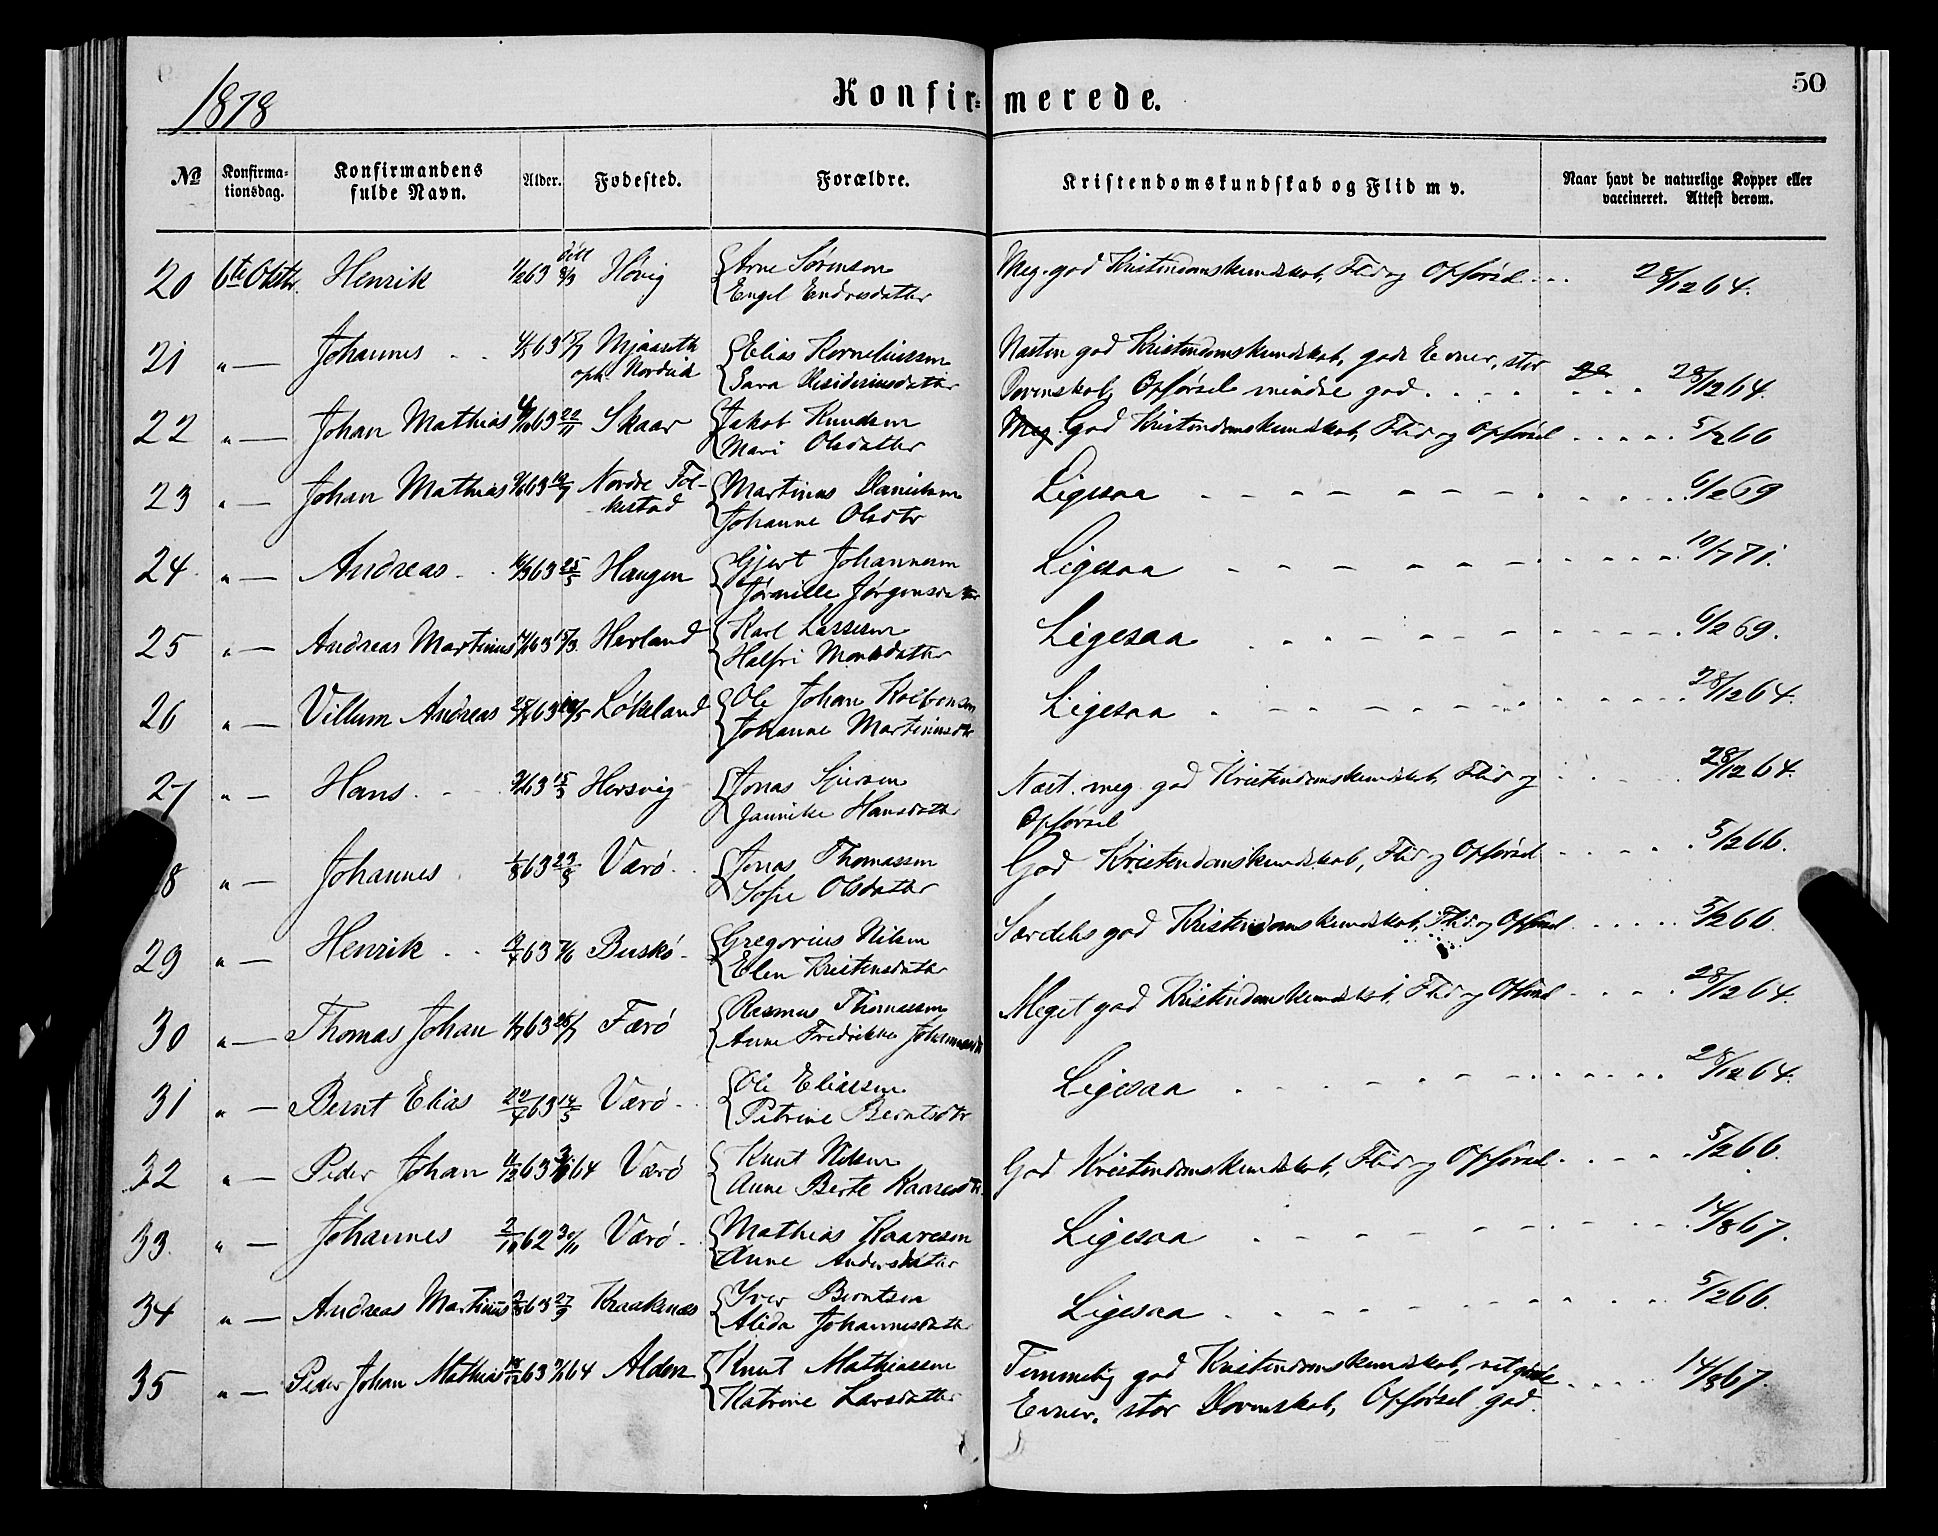 1878
Konfirmerede.
50
No
Konfirmationsdag.
Konfirmandens fulde Navn.
Alder.
Fødested.
Forældre.
Kristendomskundskab og Flid m v.
Naar havt de naturlige Kopper eller vaccineret. Attest derom.
20 6te Oktbr. Henrik 63 døbt 8/3 Høvig Arne Sørensen Engel Endresdatter Meg. god Kristendomskundskab, Flid og Opførsel 28/12 64.
21 " — Johannes 63 Mjaaseth oph. Nordvik Elias Korneliussen Sara Desideriusdatter Næsten god Kristendomskundskab, gode Evner, stor
Dovenskab, Opførsel mindre god 28/12 64.
22 " — Johan Mathias 63 22/11 Skaar Jakob Knudsen Mari Olsdatter God Kristendomskundskab, Flid og Opførsel 5/2 66
23 " — Johan Mathias 63 Nordre Folkestad Martinus Danielsen Johanne Olsdtr Ligesaa 6/2 69
24 " — Andreas 63 25/5 Haugen Gjert Johannesen Jørgensdatter Ligesaa 10/7 71.
25 " — Andreas Martinus 63 15/3 Herland Karl Lassesen Halfri Monsdatter Ligesaa 6/2 69.
26 " — Villum Andreas 63 Løkeland Ole Johan Kolbensen Johanne Martinusdtr Ligesaa 28/12 64.
27 " — Hans 63 15/3 Hersvig Jonas Sjursen Jannike Hansdatter Næst. meg. god Kristendomskundskab, Flid og
Opførsel 28/12 64.
8 " — Johannes 63 23/8 Værø Jonas Thomassen Sofie Olsdatter God Kristendomskundskab, Flid og Opførsel 5/2 66.
29 " — Henrik 63 7/6 Buskø Gregorius Nilsen Elen Kristensdatter Særdeles god Kristendomskundskab, Flid og Opførsel 5/2 66.
30 " — Thomas Johan 63 26/7 Færø Rasmus Thomassen Anne Fredrikke Johannesdtr Meget god Kristendomskundskab, Flid og Opførsel 28/12 64.
31 " — Bernt Elias 63 14/5 Værø Ole Eliassen Petrine Berntsdtr Ligesaa 28/12 64.
32 " — Peder Johan 63 64 Værø Knut Nilsen Anne Berte Kaaresdtr. God Kristendomskundskab, Flid og Opførsel 5/2 66.
33 " — Johannes 2/10 62 30/11 Værø Mathias Kaaresen Anne Andersdatter Ligesaa 14/8 67.
34 " — Andreas Martinus 63 27/9 Kraaknæs Iver Berntsen Alida Johannesdatter Ligesaa 5/2 66.
35 " — Peder Johan Mathias 63 64 Alden Knut Mathiassen Katrine Larsdatter Temmelig god Kristendomskundskab, ret gode
Evner, stor Dovenskab, Opførsel god. 14/8 67.